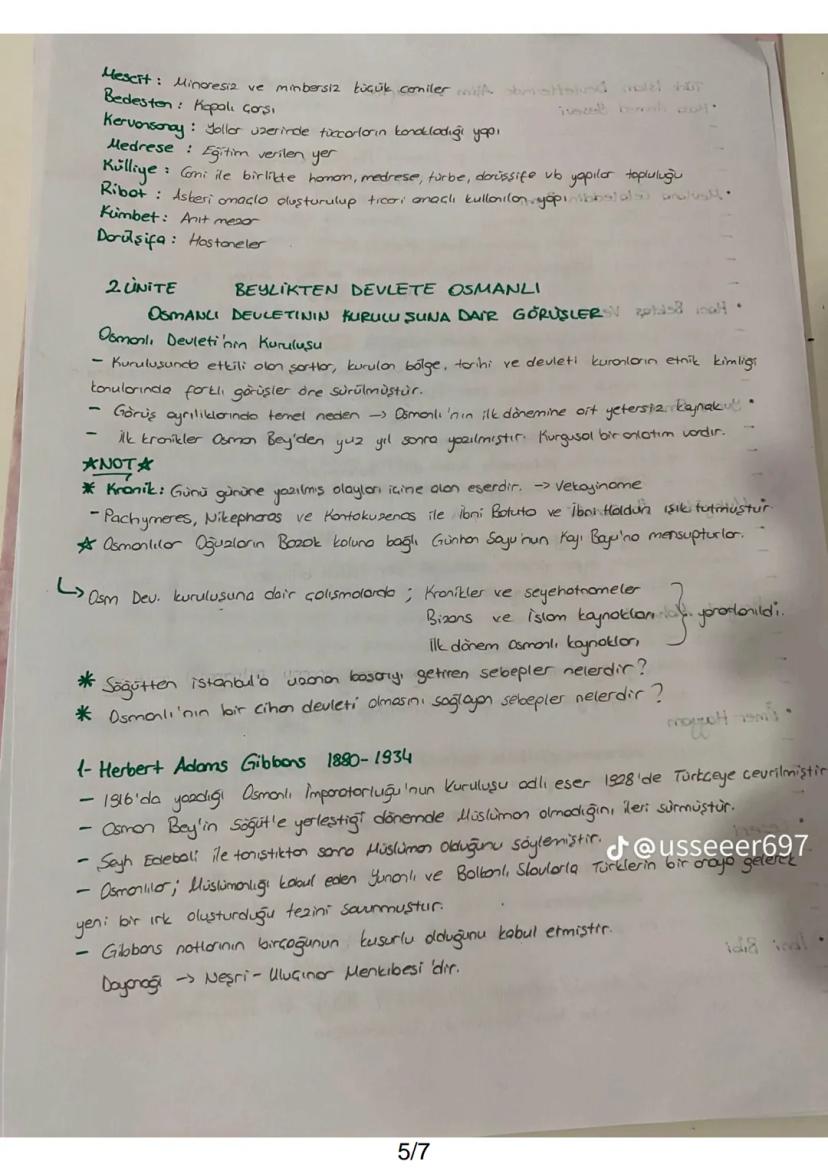 Mescit : Minaresiz ve minbersiz küçük camiler
Bedesten : Kapalı Çarşı
Kervansaray : Yollar üzerinde tüccarların konakladığı yapı
Medrese : Eğitim verilen yer
Külliye : Cami ile birlikte hamam, medrese, türbe, darüşşife vb yapılar topluluğu
Ribat : Askeri amaçla oluşturulup ticari amaçlı kullanılan yapı
Kümbet : Anıt mezar
Darülşifa : Hastaneler
2. ÜNİTE BEYLİKTEN DEVLETE OSMANLI
OSMANLI DEVLETİNİN KURULUŞUNA DAİR GÖRÜŞLER
Osmanlı Devleti'nin Kuruluşu
- Kuruluşunda etkili olan şartlar, kurulan bölge, tarihi ve devleti kuranların etnik kimliği
konularında farklı görüşler öne sürülmüştür.
- Görüş ayrılıklarında temel neden → Osmanlı'nın ilk dönemine ait yetersiz kaynak
- İlk kronikler Osman Bey'den yüz yıl sonra yazılmıştır. Kurgusal bir anlatım vardır.
★NOT★
* Kronik : Günü gününe yazılmış olayları içine alan eserdir. → Vekayiname
- Pachymeres, Nikephoros ve Kantakuzenos ile İbni Batuta ve İbni Haldun ışık tutmuştur.
★ Osmanlılar Oğuzların Bozok koluna bağlı Günhan Soyu'nun Kayı Boyu'na mensupturlar.
↳ Osm Dev. kuruluşuna dair çalışmalarda ; Kronikler ve seyehatnameler
Bizans ve İslam kaynakları } yararlanıldı.
İlk dönem Osmanlı kaynakları
* Söğütten İstanbul'a uzanan başarıyı getiren sebepler nelerdir?
* Osmanlı'nın bir cihan devleti olmasını sağlayan sebepler nelerdir?
1- Herbert Adams Gibbons 1880-1934
- 1916'da yazdığı Osmanlı İmparatorluğu'nun Kuruluşu adlı eser 1928'de Türkçeye çevrilmiştir
- Osman Bey'in Söğüt'e yerleştiği dönemde Müslüman olmadığını ileri sürmüştür.
- Şeyh Edebali ile tanıştıktan sonra Müslüman olduğunu söylemiştir.
@usseeer697
- Osmanlılar; Müslümanlığı kabul eden Yunanlı ve Balkanlı Slavlarla Türklerin bir araya gelerek
yeni bir ırk oluşturduğu tezini savunmuştur.
- Gibbons notlarının birçoğunun kusurlu olduğunu kabul etmiştir.
Dayanağı → Neşri - Uluçınar Menkıbesi'dir.
5/7